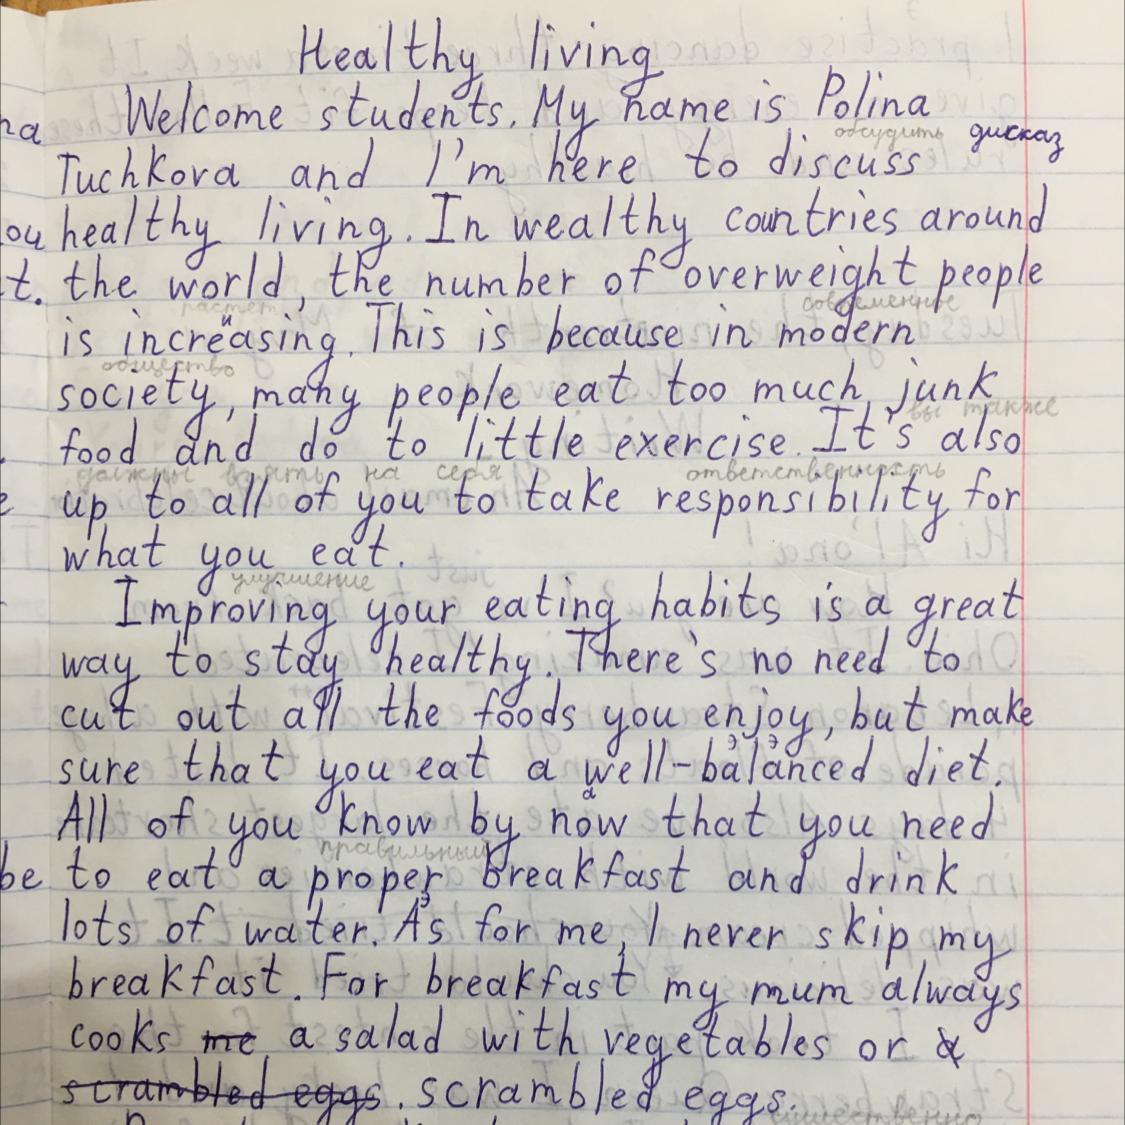 Healthy living
Welcome students. My name is Polina
обсудить дисказ
Tuchkova and I'm here to discuss
healthy living. In wealthy countries around
the world, the number of overweight people
растет и современные
is increasing. This is because in modern
общество
society, many people eat too much junk
вы также
food and do to little exercise. It's also
должны взять на себя ответственность
up to all of you to take responsibility for
what you eat.
улучшение
Improving your eating habits is a great
way to stay healthy. There's no need to
cut out all the foods you enjoy, but make
э э
sure that you eat a well-balanced diet.
а
All of you know by now that you need
правильный
be to eat a proper breakfast and drink
э
lots of water. As for me, I never skip my
breakfast. For breakfast my mum always
cooks me a salad with vegetables or a
scrambled eggs. scrambled eggs.